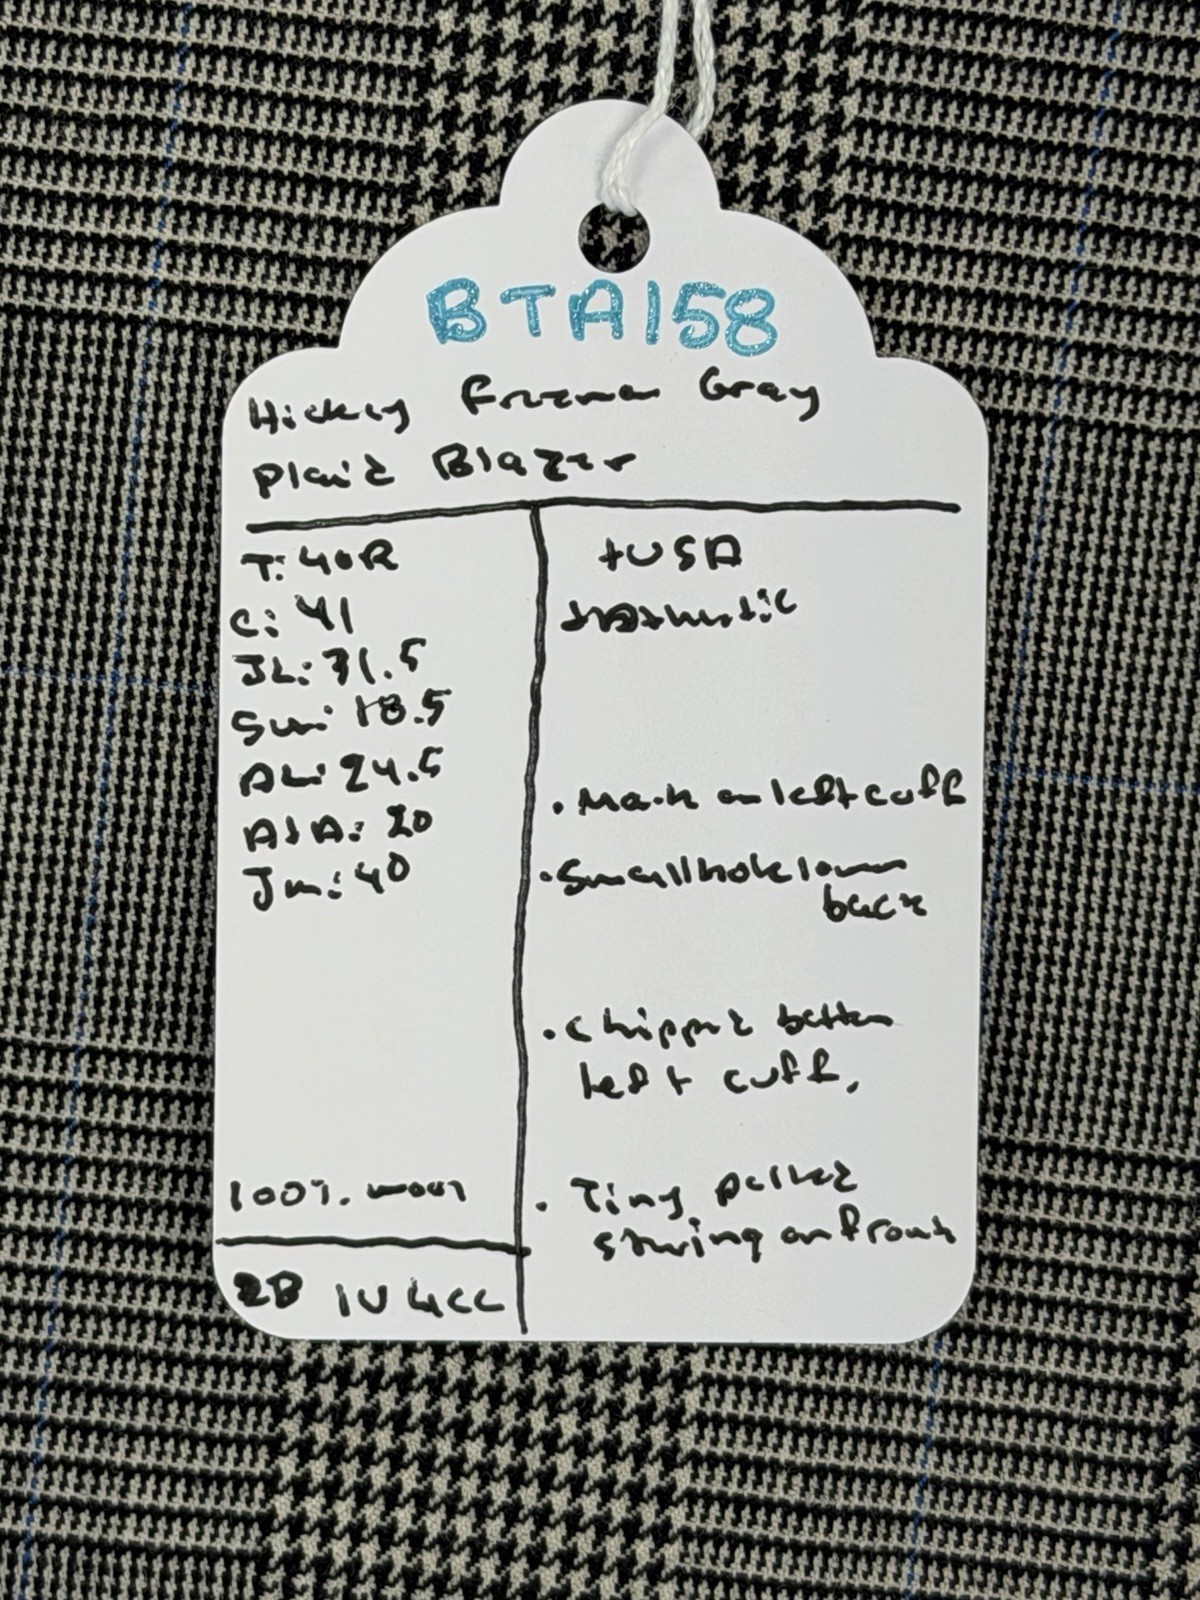 BTA158
Hickey Freeman Gray
Plaid Blazer
T: 40R
C: 41
JL: 31.5
SW: 18.5
AL: 24.5
AtA: 20
Jw: 40
100% wool
2B 1V 4CC
+USA
• Mark on left cuff
• Small hole lower
back
• Chipped button
left cuff.
• Tiny pulled
string on front